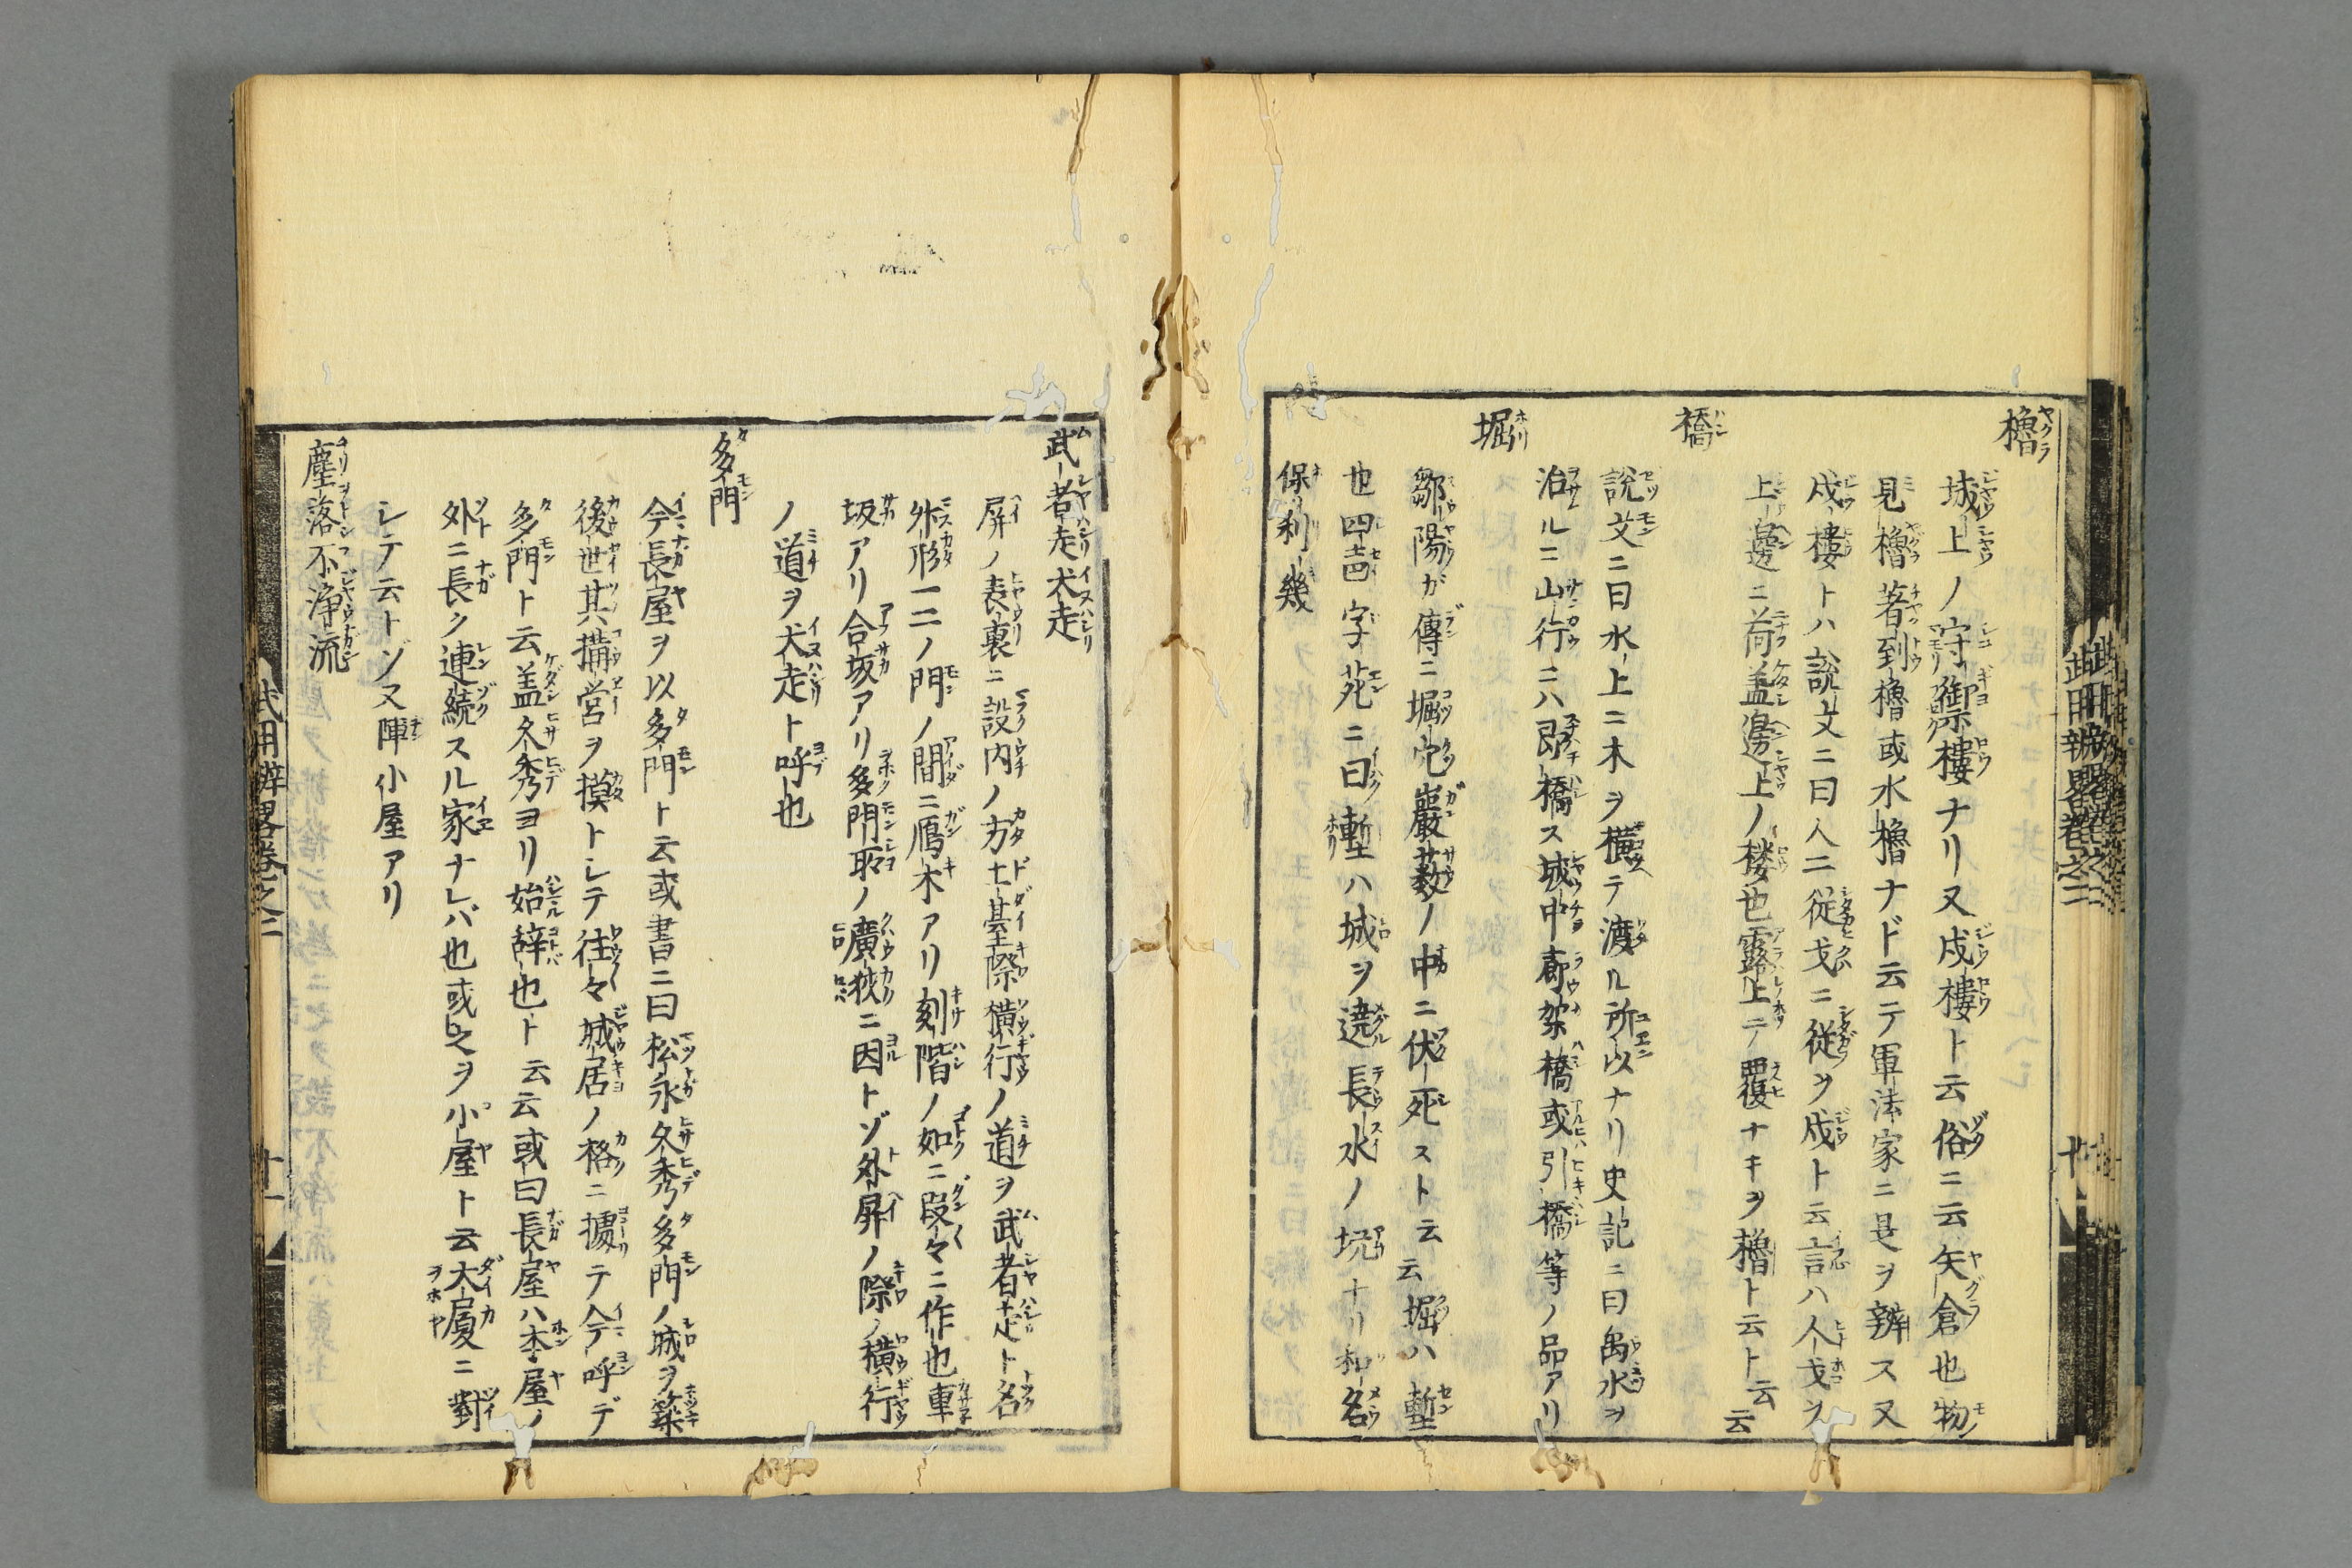 櫓
城上ノ守禦樓ナリ又戍樓ト云俗ニ云矢倉也物
見櫓著到櫓或水櫓ナド云テ軍法家ニ是ヲ辨ス又
戍樓トハ說文ニ曰人二従戈ニ従ヲ戍ト云言ハ人戈ヲ
上邊ニ荷盖邊上ノ楼也露上ニテ覆ナキヲ櫓ト云ト云云
橋
說文ニ曰水上ニ木ヲ横テ渡ル所以ナリ史記ニ曰禹水ヲ
治ルニ山行ニハ即橋ス城中廊架橋或引橋等ノ品アリ
堀
鄒陽が傳ニ堀宂巖薮ノ中ニ伏死スト云云堀ハ塹
也四聲字苑ニ曰塹ハ城ヲ遶長水ノ坑ナリ和名
保利幾
武者走犬走
屏ノ表裏ニ設内ノ方土基際横行ノ道ヲ武者走ト名
外形一二ノ門ノ間ニ鴈木アリ刻階ノ如ニ段々ニ作也車
坂アリ合坂アリ多門所ノ廣狹ニ因トゾ外屏ノ際ノ横行
ノ道ヲ犬走ト呼也
多門
今長屋ヲ以多門ト云或書ニ曰松永久秀多門ノ城ヲ築
後世其搆営ヲ摸トシテ往々城居ノ格ニ據テ今呼デ
多門ト云盖久秀ヨリ始辞也ト云云或曰長屋ハ本屋ノ
外ニ長ク連続スル家ナレバ也或之ヲ小屋ト云大廈ニ對
シテ云トゾ又陣小屋アリ
塵落不浄流
武用辨畧巻之二
十一